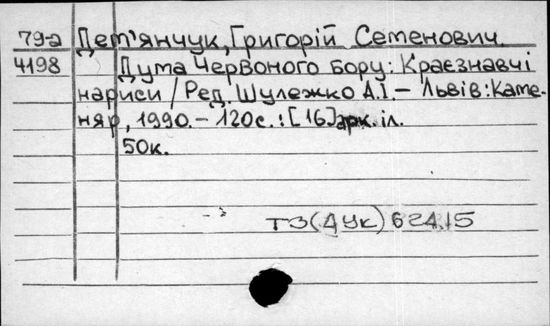 79-а Дем'янчук, Григорій Семенович.
4198 Дума Червоного бору: Краєзнавчі
нариси / Ред. Шулежко А.І. – Львів: Каме-
няр, 1990. – 120с. : [16] арк. іл.
50к.
Т3(4Ук) 624.15